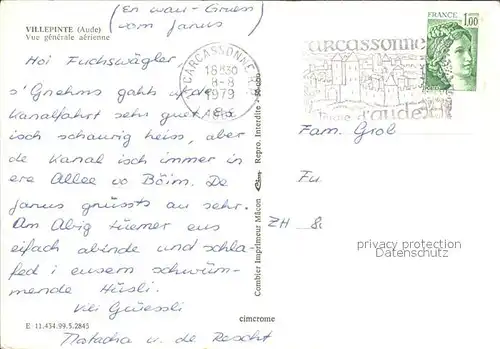 (En wau-Gruess
vom Janus)
VILLEPINTE (Aude)
Vue générale aérienne
Hoi Fuchswägler,
s'Gnehms gahts uf de
Kanalfahrt sehr guet. Es
isch schaurig heiss, aber
de Kanal isch immer in
ere Allee vo Böim. De
Janus grüssts au sehr.
Am Abig tüemer eus
eifach abinde und schla-
fed i eusem schwüm-
mende Hüsli.
Vili Grüessli
Natacha u. de Rescht
E 11.434.99.5.2845
cimcrome
Combier Imprimeur Mâcon
Repro. Interdite
CARCASSONNE
18H30
8-8
1979
AUDE
carcassonne
d'aude
FRANCE
1,00
Fam. Grob
Fu
ZH 8
privacy protection
Datenschutz